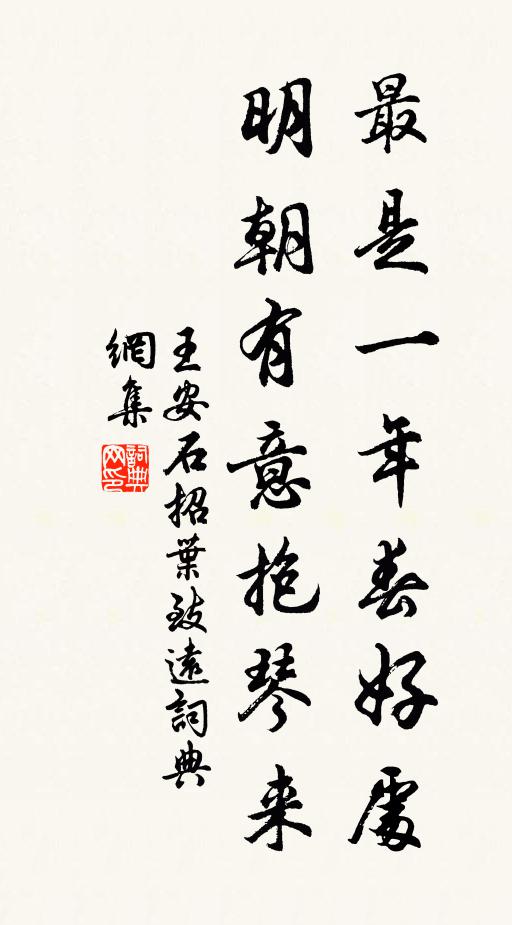 最是一年春好處
明朝有意抱琴来
王安石招葉致遠詞典
網集
詞典
网印